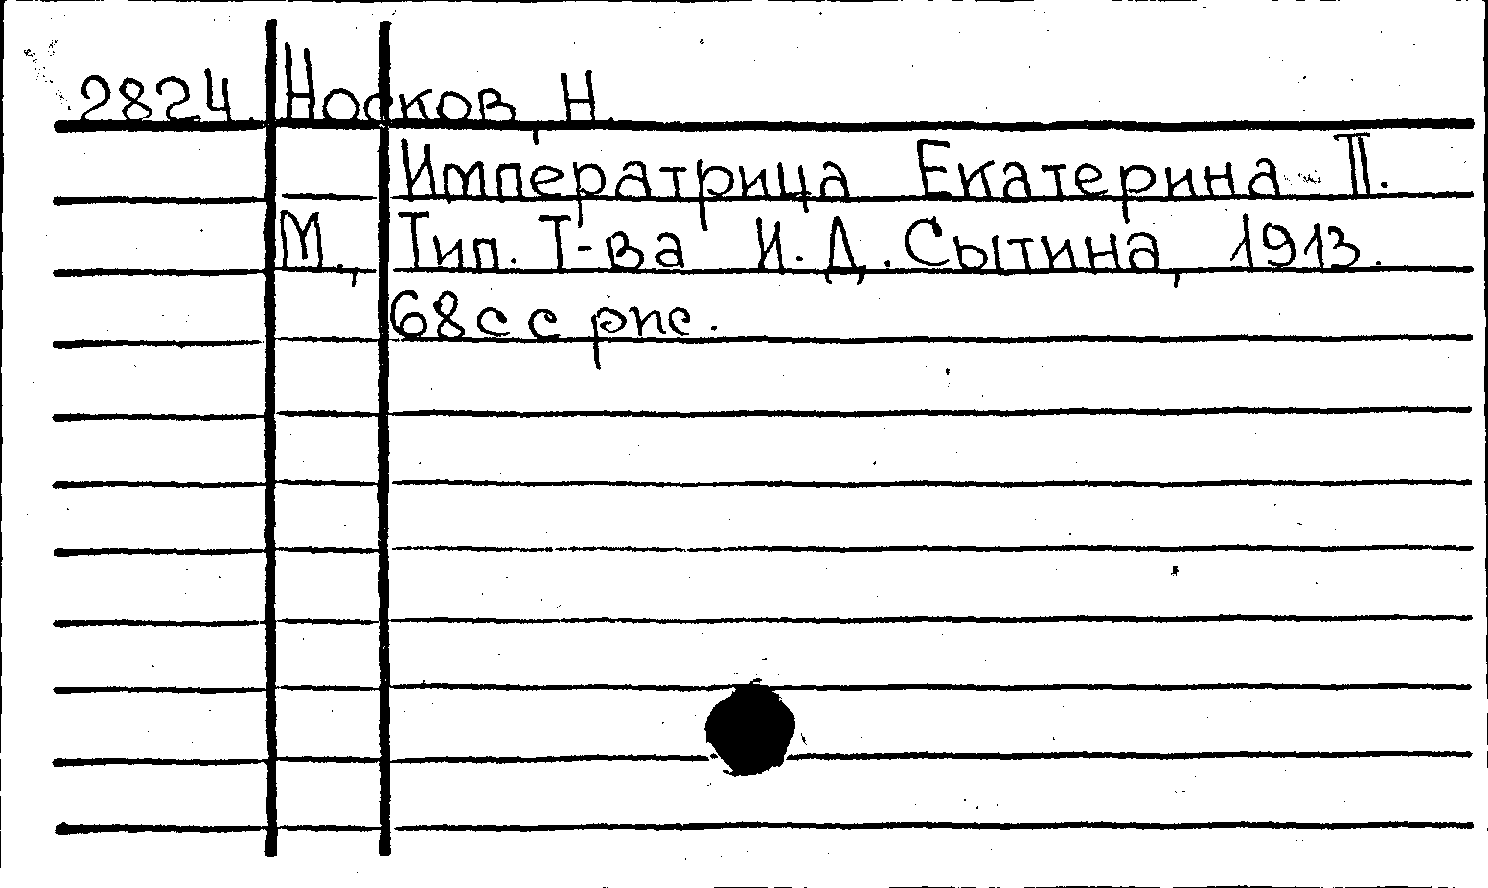 2824. Носков, Н.
Императрица Екатерина II.
М., Тип. Т-ва И.Д. Сытина, 1913.
68с с рис.